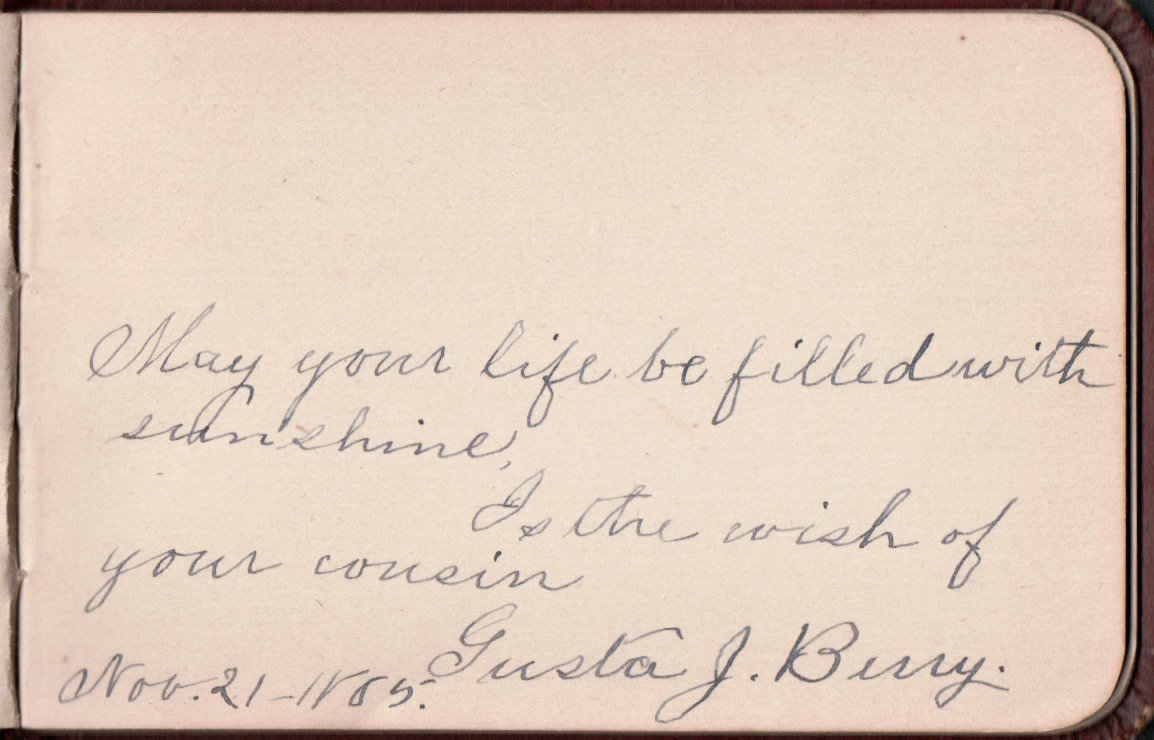 May your life be filled with
sunshine,
Is the wish of
your cousin
Gusta J. Berry.
Nov. 21-1885.